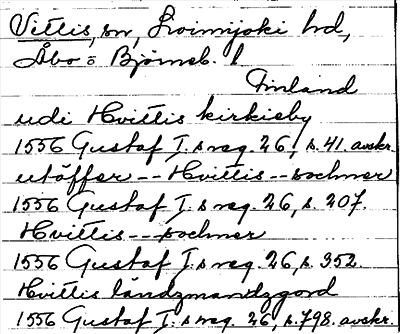 Vittis, sn, Loimijoki hd,
Åbo o Björneb. l
Finland
udi Hvittis kirkieby
1556 Gustaf I:s reg. 26, s. 41. avskr.
utöffer -- Hvittis -- sochner
1556 Gustaf I:s reg. 26, s. 207.
Hvittis --- sochner
1556 Gustaf I:s reg. 26, s. 352.
Hvittis låndzmandzgord
1556 Gustaf I:s reg. 26, s. 798. avskr.